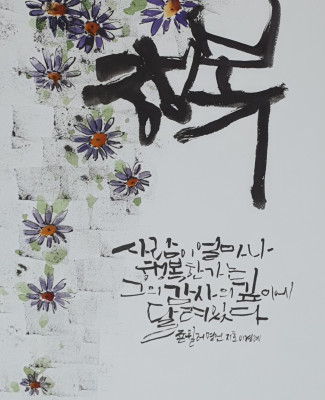 행복
사람이 얼마나
행복한가는
그의 감사의 깊이에
달려있다
존 밀러 명언